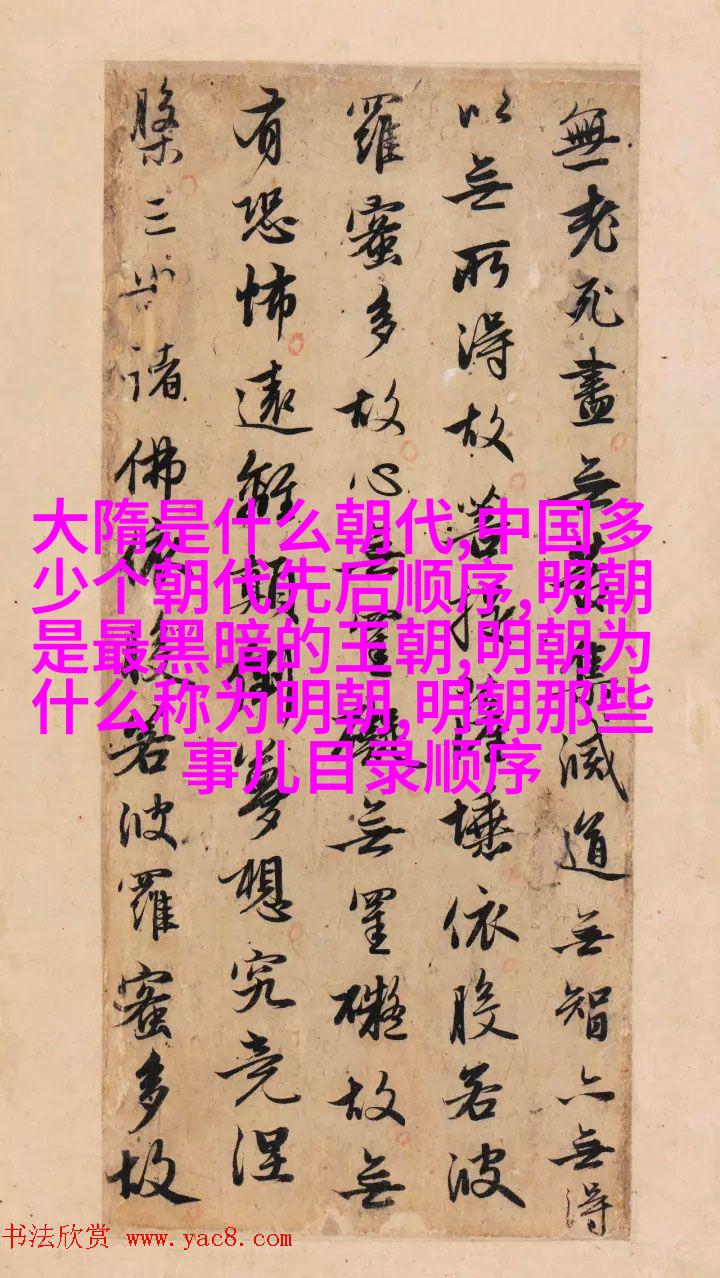 無老死盡無苦集滅道無智亦無得
以無所得故菩提薩埵依般若波
羅蜜多故心無罣礙無罣礙故無
有恐怖遠離顛倒夢想究竟涅
槃三世諸佛依般若波羅蜜多故
大隋是什么朝代,中国多
少个朝代先后顺序,明朝
是最黑暗的王朝,明朝为
什么称为明朝,明朝那些
事儿目录顺序
书法欣赏 www.yac8.com